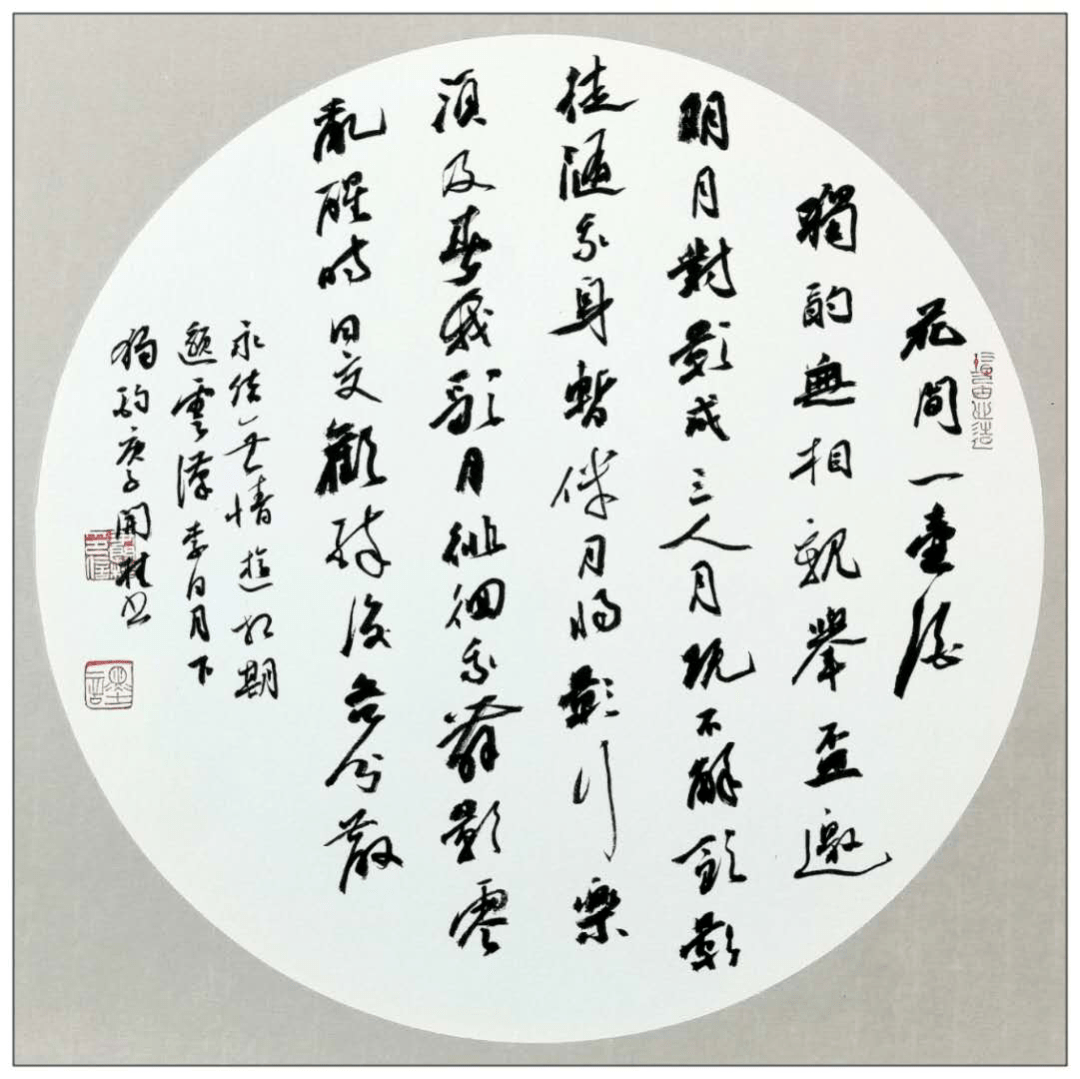 花間一壺酒
獨酌無相親舉盃邀
明月對影成三人月既不解飲影
徒隨我身暫伴月將影行樂
須及春我歌月徘徊我舞影零
亂醒時同交歡醉後各分散
永結无情遊相期
邈雲漢李白月下
獨酌庚子開桂书